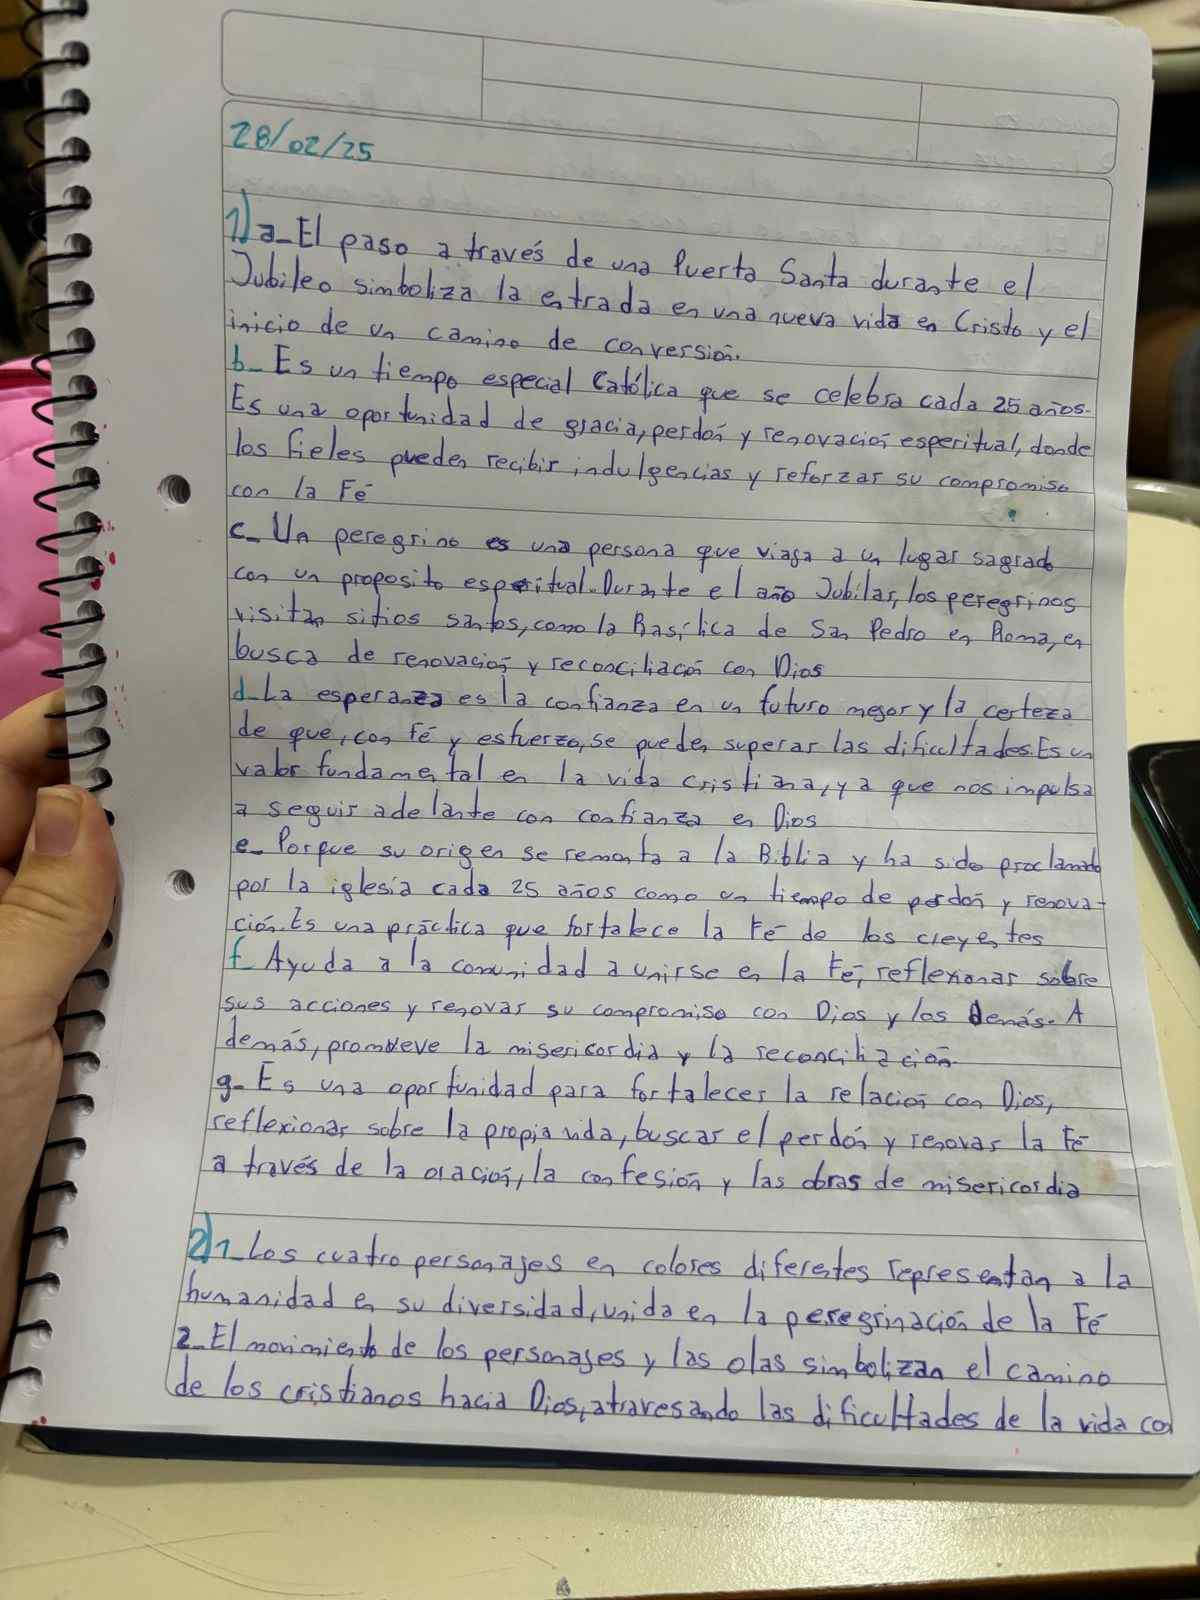 28/02/25
1) a- El paso a través de una Puerta Santa durante el
Jubileo simboliza la entrada en una nueva vida en Cristo y el
inicio de un camino de conversión.
b- Es un tiempo especial Católica que se celebra cada 25 años.
Es una oportunidad de gracia, perdón y renovación esperitual, donde
los fieles pueden recibir indulgencias y reforzar su compromiso
con la Fé
c- Un peregrino es una persona que viaga a un lugar sagrado
con un proposito espiritual. Durante el año Jubilar, los peregrinos
visitan sitios santos, como la Basílica de San Pedro en Roma, en
busca de renovación y reconciliación con Dios
d- La esperanza es la confianza en un futuro megor y la certeza
de que, con Fé y esfuerzo, se pueden superar las dificultades. Es un
valor fundamental en la vida cristiana, ya que nos impulsa
a seguir adelante con confianza en Dios
e- Porque su origen se remonta a la Biblia y ha sido proclamado
por la iglesia cada 25 años como un tiempo de perdón y renova-
ción. Es una práctica que fortalece la Fé de los creyentes
f- Ayuda a la comunidad a unirse en la Fé, reflexionar sobre
sus acciones y renovar su compromiso con Dios y los demás. A
demás, promueve la misericordia y la reconciliación
g- Es una oportunidad para fortalecer la relación con Dios,
reflexionar sobre la propia vida, buscar el perdón y renovar la Fé
a través de la oración, la confesión y las obras de misericordia
2) 1- Los cuatro personages en colores diferentes representan a la
humanidad en su diversidad, unida en la peregrinación de la Fé
2- El movimiento de los personages y las olas simbolizan el camino
de los cristianos hacia Dios, atravesando las dificultades de la vida con